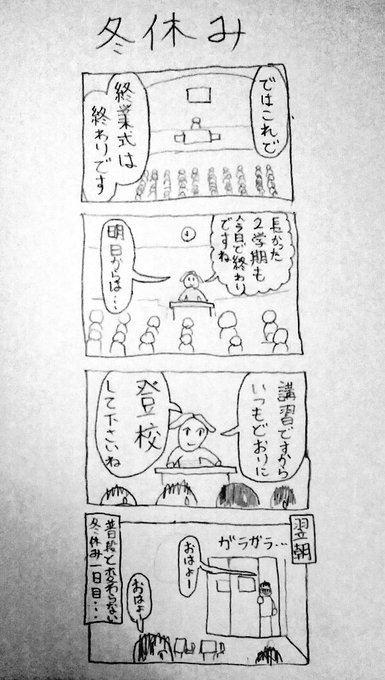 冬休み
ではこれで
終業式は
終わりです
長かった
2学期も
今日で終わり
ですね
明日からは…
講習ですから
いつもどおりに
登校
して下さいね
翌朝
ガラガラ…
おはよー
おはよ
普段と変わらない
冬休み一日目…